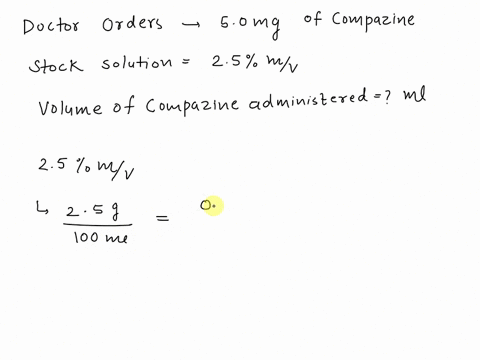 Doctor Orders → 5.0 mg of Compazine
Stock solution = 2.5% m/v
Volume of Compazine administered = ? ml
2.5 % m/v
↳ 2.5 g / 100 ml = 0.